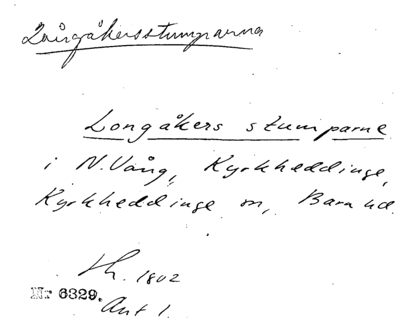 Långåkersstumparna
Longåkers stumparne
i N. Vång, Kyrkheddinge,
Kyrkheddinge sn, Bara hd.
Sh. 1802
Nr 6329.
Akt 1.